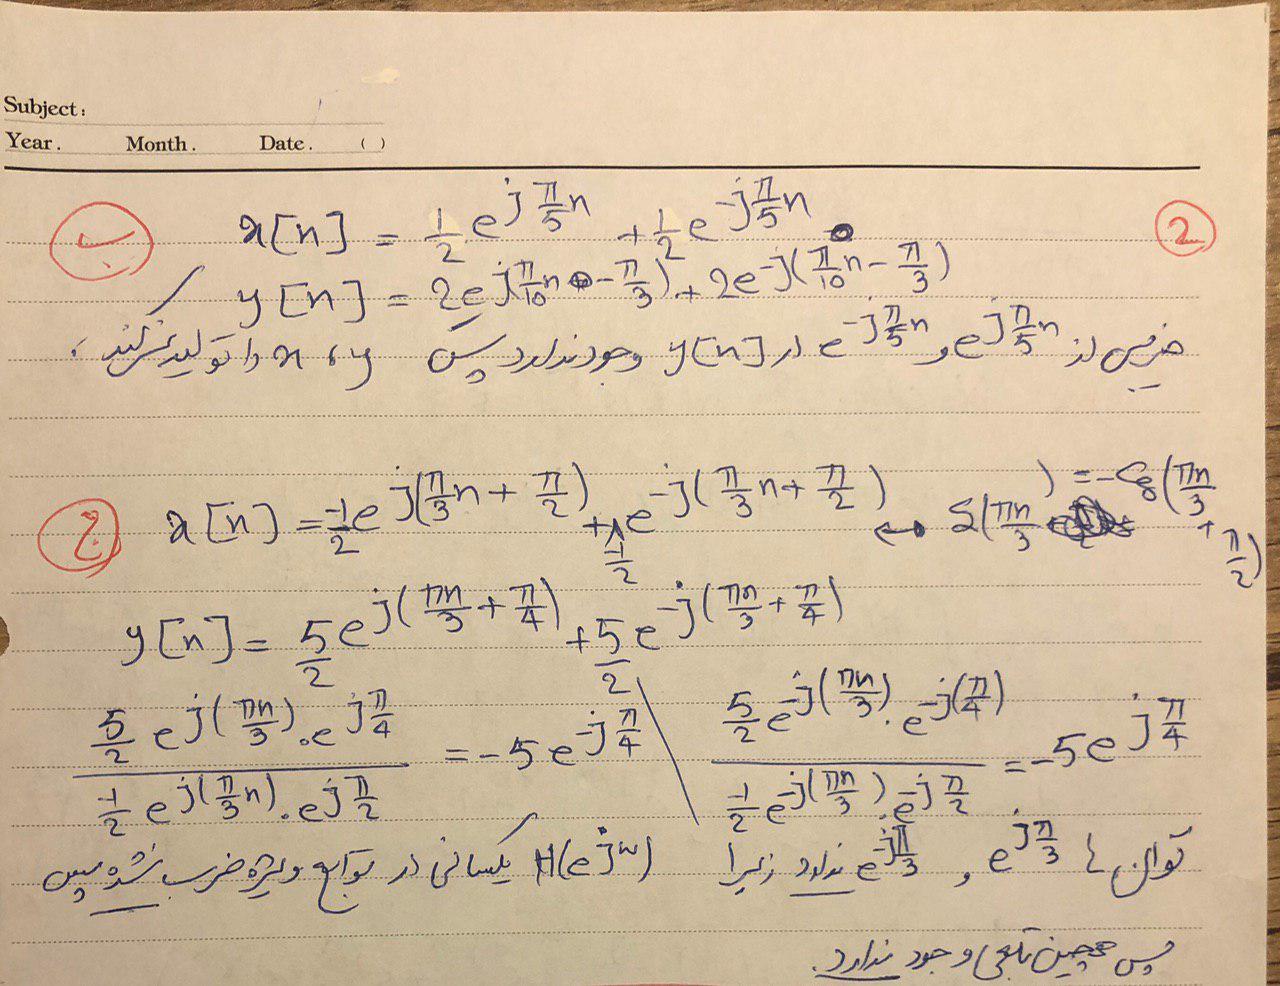 Subject:
Year. Month. Date. ( )
2
ب x[n] = 1/2 e^{jπ/5 n} + 1/2 e^{-jπ/5 n}
y[n] = 2e^{j(π/10 n - π/3)} + 2e^{-j(π/10 n - π/3)}
ضریبی از e^{jπ/5 n} و e^{-jπ/5 n} در y[n] وجود ندارد پس y ، x را تولید نمیکند
x[n] = -1/2 e^{j(π/3 n + π/2)} + -1/2 e^{-j(π/3 n + π/2)} ↔ S(πn/3) = -Cos(πn/3 + π/2)
y[n] = 5/2 e^{j(πn/3 + π/4)} + 5/2 e^{-j(πn/3 + π/4)}
5/2 e^{j(πn/3)} . e^{jπ/4} / -1/2 e^{j(π/3 n)} . e^{jπ/2} = -5e^{-jπ/4} \ 5/2 e^{-j(πn/3)} . e^{-j(π/4)} / -1/2 e^{-j(πn/3)} . e^{-jπ/2} = -5e^{jπ/4}
توان ها e^{jπ/3} و e^{-jπ/3} ندارد زیرا H(e^{jω}) یکسانی در توابع ویژه ضرب نشده پس
پس همچین تابعی وجود ندارد.